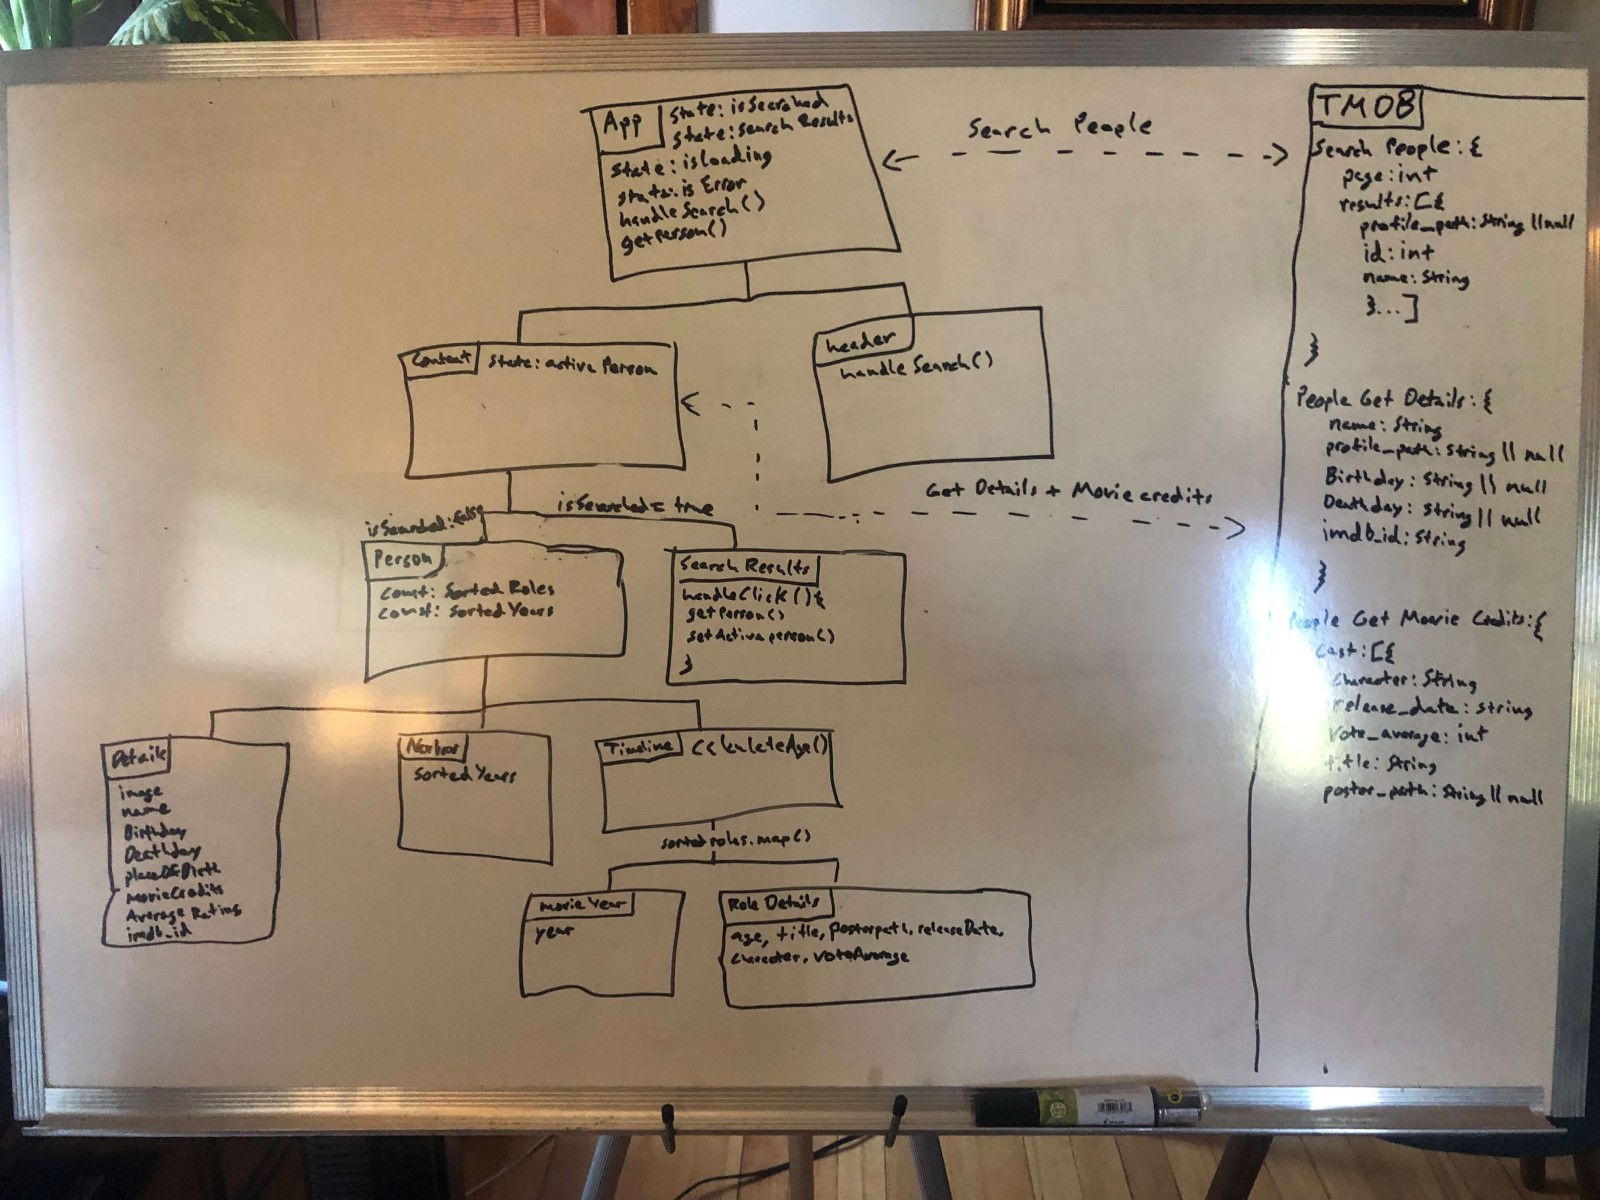 App
State: isSearched
state: search Results
State: isLoading
state: is Error
handle Search()
getPerson()
Search People
Content
State: active Person
header
handle Search()
Get Details + Movie credits
isSearched: false
isSearched = true
Person
const: Sorted Roles
const: Sorted Years
Search Results
handleClick(){
getPerson()
setActiveperson()
}
Details
image
name
Birthday
Deathday
placeOfBirth
movieCredits
Average Rating
imdb_id
Navbar
sorted Years
Timeline
calculateAge()
sortedroles.map()
movie Year
year
Role Details
age, title, posterpath, releaseDate,
character, voteAverage
TMDB
Search People: {
page: int
results: [{
profile_path: String || null
id: int
name: String
}...]
}
People Get Details: {
name: String
profile_path: String || null
Birthday: String || null
Deathday: String || null
imdb_id: String
}
People Get Movie Credits: {
Cast: [{
character: String
release_date: string
vote_average: int
title: String
poster_path: String || null